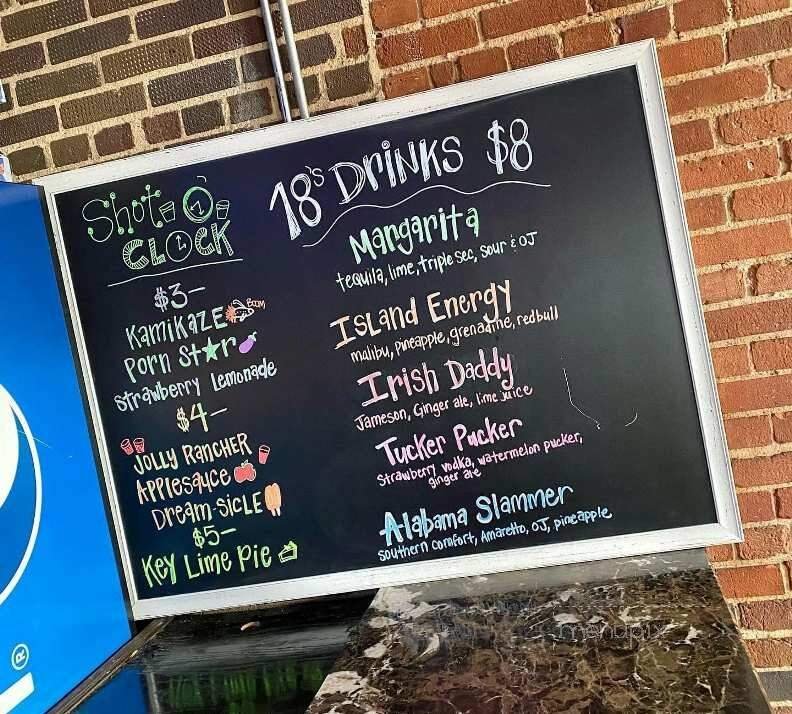 Shot
CLOCK
$3-
KAMIKAZE BOOM
Porn St★r
Strawberry Lemonade
$4-
JOLLY RANCHER
APPLESAUCE
DREAM-SICLE
$5-
KEY LIME PIE
18's DRINKS $8
Margarita
tequila, lime, triple sec, sour & OJ
ISLAND ENERGY
malibu, pineapple, grenadine, redbull
Irish Daddy
Jameson, Ginger ale, lime juice
Tucker Pucker
Strawberry vodka, watermelon pucker,
ginger ale
Alabama Slammer
southern comfort, Amaretto, OJ, pineapple
menupix
®